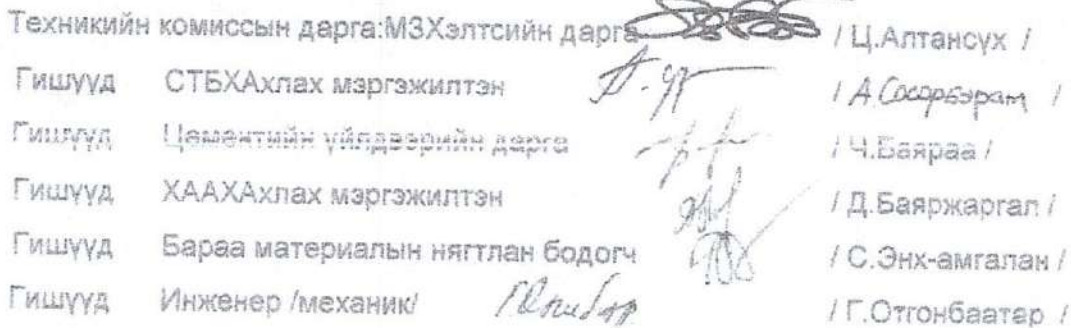 Техникийн комиссын дарга:МЗХэлтсийн дарга / Ц.Алтансүх /
Гишүүд СТБХАхлах мэргэжилтэн / А.Сосорбарам /
Гишүүд Цементийн үйлдвэрийн дарга / Ч.Баяраа /
Гишүүд ХААХАхлах мэргэжилтэн / Д.Баяржаргал /
Гишүүд Бараа материалын нягтлан бодогч / С.Энх-амгалан /
Гишүүд Инженер /механик/ / Г.Отгонбаатар /